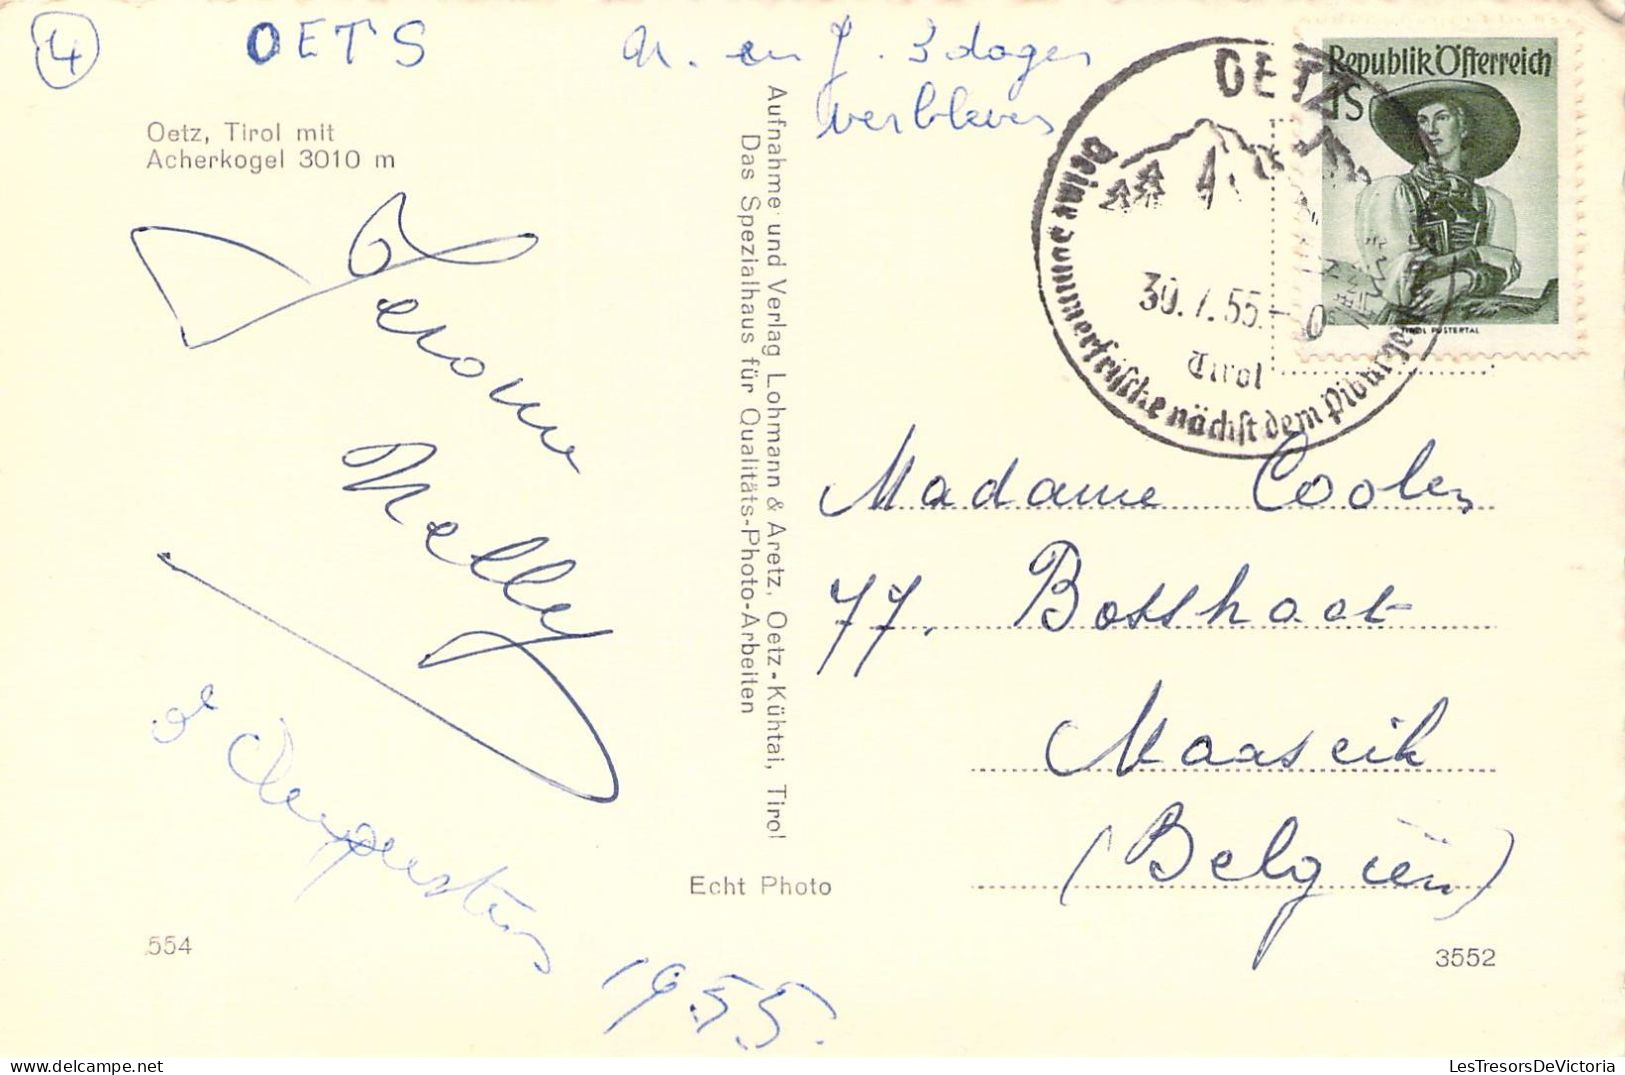 4
OETS
N. en J. 3 dagen
verbleven
Oetz, Tirol mit
Acherkogel 3010 m
Aufnahme und Verlag Lohmann & Aretz, Oetz-Kühtai, Tirol
Das Spezialhaus für Qualitäts-Photo-Arbeiten
Republik Österreich
1S
TIROL PUSTERTAL
OETZ
Deine Sommerfrische nächst dem Piburger
30.7.55.-
Tirol
Jerome
Nelly
Augustus
1955.
Madame Coolen
77. Bosstraat
Maaseik
(Belgiën)
Echt Photo
554
3552
LesTresorsDeVictoria